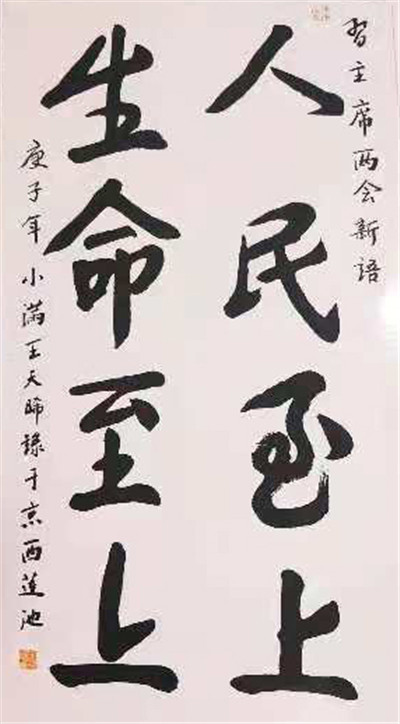 習主席两会新語
人民至上
生命至上
庚子年小满王天晞錄于京西莲池